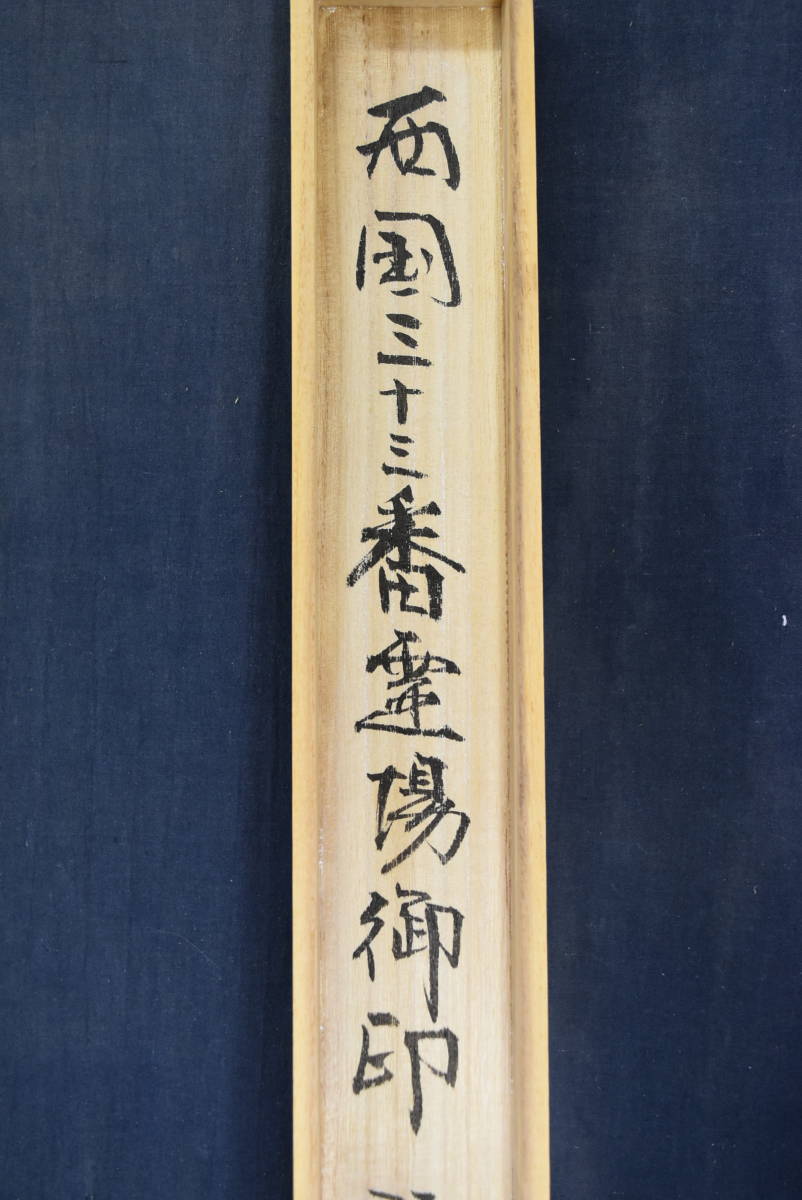 西国三十三番霊場御印